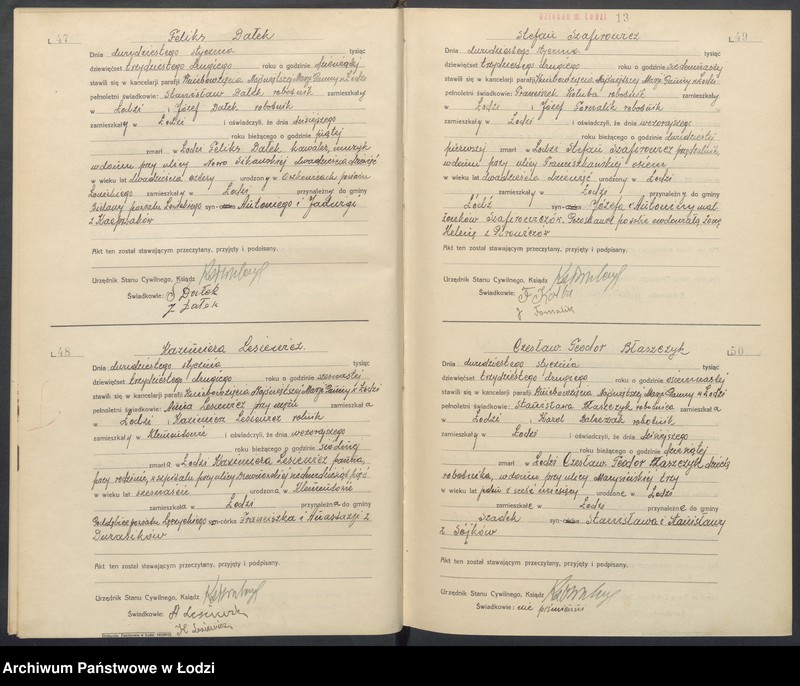 L. 47
Feliks Dałek
Dnia dwudziestego stycznia tysiąc
dziewięćset trzydziestego drugiego roku o godzinie dziesiątej
stawili się w kancelarji parafji Wniebowzięcia Najświętszej Marji Panny w Łodzi
pełnoletni świadkowie: Stanisław Dałek robotnik zamieszkały
w Łodzi i Józef Dałek robotnik
zamieszkały w Łodzi i oświadczyli, że dnia dzisiejszego
roku bieżącego o godzinie piątej
w Łodzi Feliks Dałek kawaler, muzyk
w domu przy ulicy
w wieku lat dwadzieścia cztery urodzony w powiatu
zamieszkały w Łodzi przynależny do gminy
powiatu syn Antoniego i Jadwigi
z Kacprzaków
Akt ten został stawającym przeczytany, przyjęty i podpisany.
Urzędnik Stanu Cywilnego, Ksiądz
Świadkowie: S Dałek
J Dałek
L. 48
Kazimiera Lesiewicz.
Dnia dwudziestego stycznia tysiąc
dziewięćset trzydziestego drugiego roku o godzinie szesnastej
stawili się w kancelarji parafji Wniebowzięcia Najświętszej Marji Panny w Łodzi
pełnoletni świadkowie: Anna Lesiewicz przy mężu zamieszkała
w Łodzi i Kazimierz Lesiewicz rolnik
zamieszkały w Klementowie i oświadczyli, że dnia wczorajszego
roku bieżącego o godzinie siódmej
zmarła w Łodzi Kazimiera Lesiewicz panna,
przy rodzinie, w szpitalu przy ulicy
w wieku lat szesnaście urodzona w Klementowie
zamieszkała w Łodzi przynależna do gminy
powiatu Łęczyckiego córka Franciszka i Anastazji z
Durasików
Akt ten został stawającym przeczytany, przyjęty i podpisany.
Urzędnik Stanu Cywilnego, Ksiądz
Świadkowie: A Lesiewicz
K Lesiewicz
13
L. 49
Stefan Szafirowicz
Dnia dwudziestego stycznia tysiąc
dziewięćset trzydziestego drugiego roku o godzinie siedemnastej
stawili się w kancelarji parafji Wniebowzięcia Najświętszej Marji Panny w Łodzi
pełnoletni świadkowie: Franciszek robotnik zamieszkały
w Łodzi i Józef robotnik
zamieszkały w Łodzi i oświadczyli, że dnia wczorajszego
roku bieżącego o godzinie dwudziestej
pierwszej zmarł w Łodzi Stefan Szafirowicz
w domu przy ulicy Franciszkańskiej osiem
w wieku lat dwadzieścia dziewięć urodzony w Łodzi
zamieszkały w Łodzi przynależny do gminy
Łódź syn Józefa i Antoniny mał-
żonków Szafirowiczów. Pozostawił po sobie owdowiałą żonę
Helenę z
Akt ten został stawającym przeczytany, przyjęty i podpisany.
Urzędnik Stanu Cywilnego, Ksiądz
Świadkowie:
L. 50
Czesław Teodor Błaszczyk
Dnia dwudziestego stycznia tysiąc
dziewięćset trzydziestego drugiego roku o godzinie osiemnastej
stawili się w kancelarji parafji Wniebowzięcia Najświętszej Marji Panny w Łodzi
pełnoletni świadkowie: Stanisława Błaszczyk robotnica zamieszkała
w Łodzi i Karol robotnik
zamieszkały w Łodzi i oświadczyli, że dnia dzisiejszego
roku bieżącego o godzinie dziesiątej
zmarł w Łodzi Czesław Teodor Błaszczyk dziecię
robotnika, w domu przy ulicy Marysińskiej trzy
w wieku lat urodzone w Łodzi
zamieszkałe w Łodzi przynależne do gminy
Szadek syn Stanisława i Stanisławy
z Sójków
Akt ten został stawającym przeczytany, przyjęty i podpisany.
Urzędnik Stanu Cywilnego, Ksiądz
Świadkowie: nie piśmienni
Archiwum Państwowe w Łodzi